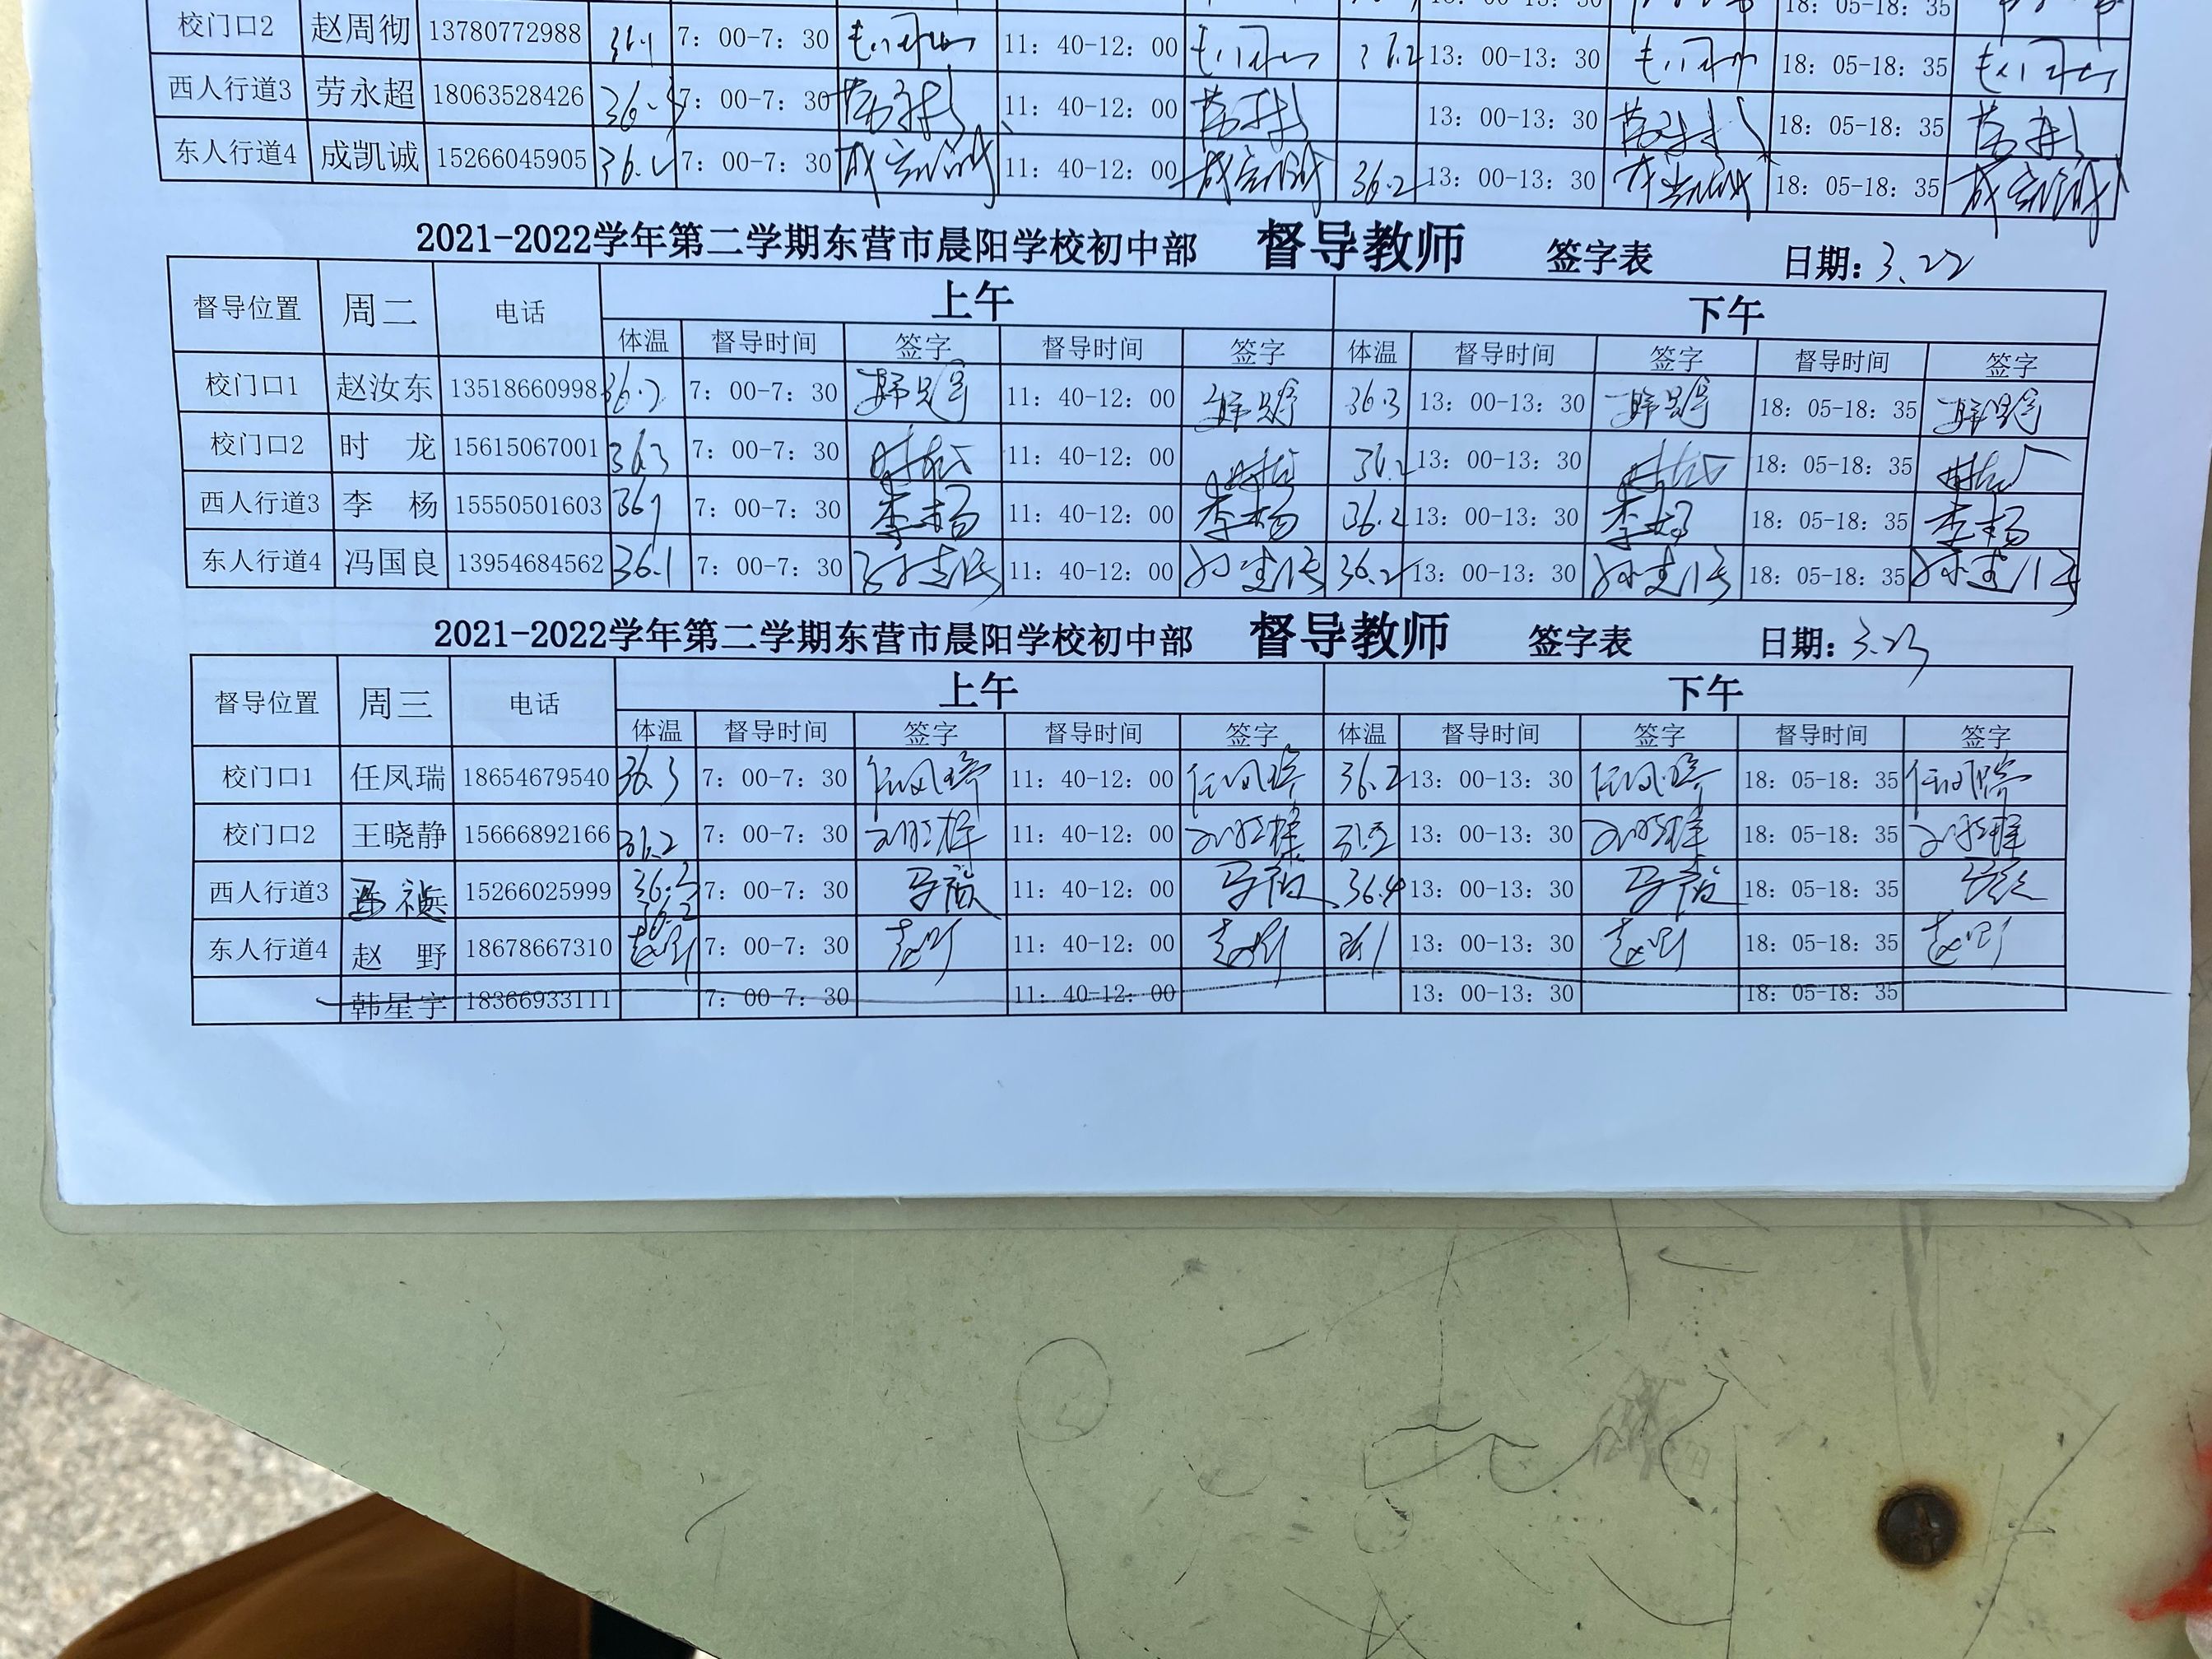 校门口2 赵周彻 13780772988 36.1 7：00-7：30 11：40-12：00 36.2 13：00-13：30 18：05-18：35
西人行道3 劳永超 18063528426 7：00-7：30 11：40-12：00 13：00-13：30 18：05-18：35
东人行道4 成凯诚 15266045905 7：00-7：30 成凯诚 11：40-12：00 成凯诚 36.2 13：00-13：30 成凯诚 18：05-18：35 成凯诚
2021-2022学年第二学期东营市晨阳学校初中部 督导教师 签字表 日期：3.22
督导位置 周二 电话 上午 下午
体温 督导时间 签字 督导时间 签字 体温 督导时间 签字 督导时间 签字
校门口1 赵汝东 13518660998 7：00-7：30 11：40-12：00 36.3 13：00-13：30 18：05-18：35
校门口2 时 龙 15615067001 36.3 7：00-7：30 时龙 11：40-12：00 时龙 13：00-13：30 时龙 18：05-18：35 时龙
西人行道3 李 杨 15550501603 7：00-7：30 李杨 11：40-12：00 李杨 36.2 13：00-13：30 李杨 18：05-18：35 李杨
东人行道4 冯国良 13954684562 36.1 7：00-7：30 11：40-12：00 36.2 13：00-13：30 18：05-18：35
2021-2022学年第二学期东营市晨阳学校初中部 督导教师 签字表 日期：3.23
督导位置 周三 电话 上午 下午
体温 督导时间 签字 督导时间 签字 体温 督导时间 签字 督导时间 签字
校门口1 任凤瑞 18654679540 36.3 7：00-7：30 任凤瑞 11：40-12：00 任凤瑞 36.2 13：00-13：30 任凤瑞 18：05-18：35 任凤瑞
校门口2 王晓静 15666892166 36.2 7：00-7：30 11：40-12：00 13：00-13：30 18：05-18：35
西人行道3 15266025999 7：00-7：30 11：40-12：00 36.4 13：00-13：30 18：05-18：35
东人行道4 赵 野 18678667310 36.2 赵野 7：00-7：30 赵野 11：40-12：00 赵野 36.1 13：00-13：30 赵野 18：05-18：35 赵野
韩星宇 18366933111 7：00-7：30 11：40-12：00 13：00-13：30 18：05-18：35